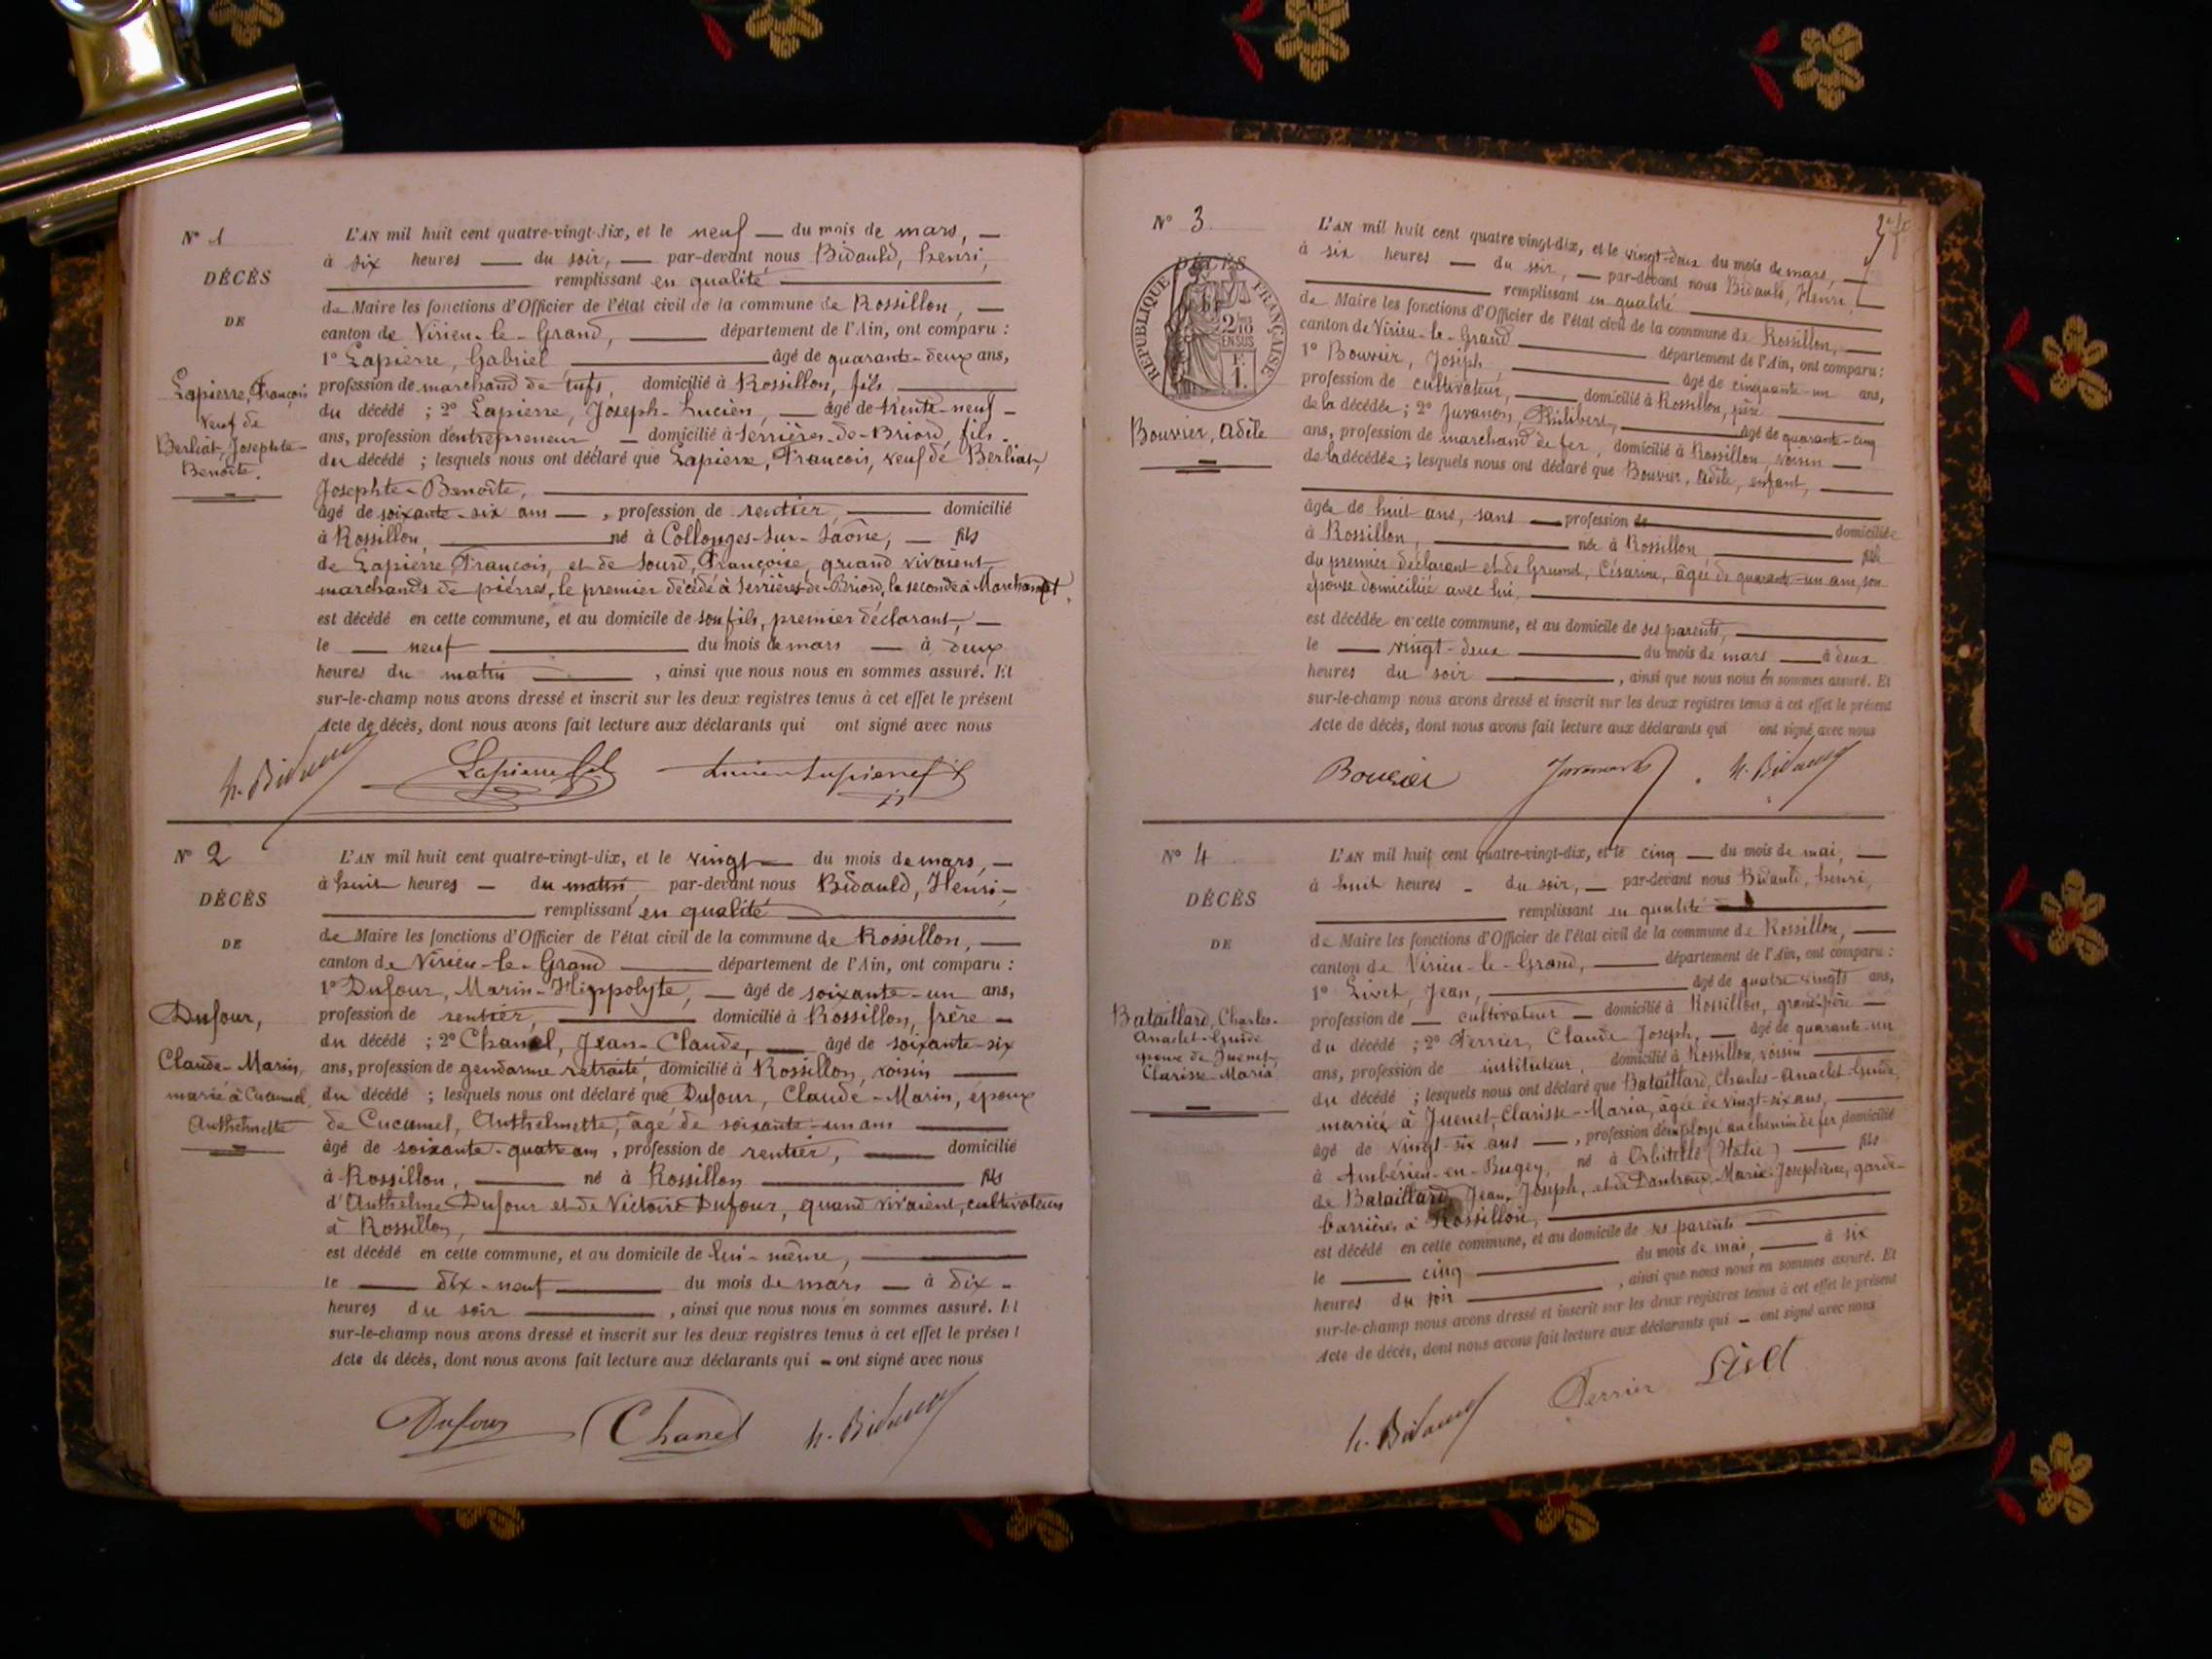 N° 1
DÉCÈS
DE
Lapierre, François
veuf de
Berliat, Josephte-
Benoîte.
L'AN mil huit cent quatre-vingt-dix, et le neuf — du mois de mars, —
à six heures — du soir, — par-devant nous Bidauld, Henri,
remplissant en qualité
de Maire les fonctions d'Officier de l'état civil de la commune de Rossillon, —
canton de Virieu-le-Grand, — département de l'Ain, ont comparu :
1° Lapierre, Gabriel — âgé de quarante-deux ans,
profession de marchand de tufs, domicilié à Rossillon, fils
du décédé ; 2° Lapierre, Joseph-Lucien, — âgé de trente-neuf -
ans, profession d'entrepreneur, — domicilié à Serrières-de-Briord, fils -
du décédé ; lesquels nous ont déclaré que Lapierre, François, veuf de Berliat,
Josephte-Benoîte,
âgé de soixante-six ans —, profession de rentier, — domicilié
à Rossillon, — né à Collonges-sur-Saône, — fils
de Lapierre, François, et de Sourd, Françoise, quand vivaient
marchands de pierres, le premier décédé à Serrières-de-Briord, la seconde à Marchampt,
est décédé en cette commune, et au domicile de son fils, premier déclarant, —
le — neuf — du mois de mars — à deux
heures du matin —, ainsi que nous nous en sommes assuré. Et
sur-le-champ nous avons dressé et inscrit sur les deux registres tenus à cet effet le présent
Acte de décès, dont nous avons fait lecture aux déclarants qui ont signé avec nous
h. Bidauld Lapierre Gel Lucien Lapierre fils
N° 2
DÉCÈS
DE
Dufour,
Claude-Marin,
marié à Cucumel,
Anthelmette
L'AN mil huit cent quatre-vingt-dix, et le vingt — du mois de mars, —
à huit heures — du matin par-devant nous Bidauld, Henri-
remplissant en qualité
de Maire les fonctions d'Officier de l'état civil de la commune de Rossillon, —
canton de Virieu-le-Grand — département de l'Ain, ont comparu :
1° Dufour, Marin-Hippolyte, — âgé de soixante-un ans,
profession de rentier, — domicilié à Rossillon, frère —
du décédé ; 2° Chanel, Jean-Claude, — âgé de soixante-six
ans, profession de gendarme retraité, domicilié à Rossillon, voisin —
du décédé ; lesquels nous ont déclaré que Dufour, Claude-Marin, époux
de Cucumel, Anthelmette, âgée de soixante-un ans —
âgé de soixante-quatre ans, profession de rentier, — domicilié
à Rossillon, — né à Rossillon — fils
d'Anthelme Dufour et de Victoire Dufour, quand vivaient, cultivateurs
à Rossillon,
est décédé en cette commune, et au domicile de lui-même, —
le — dix-neuf — du mois de mars — à dix -
heures du soir —, ainsi que nous nous en sommes assuré. Et
sur-le-champ nous avons dressé et inscrit sur les deux registres tenus à cet effet le présent
Acte de décès, dont nous avons fait lecture aux déclarants qui — ont signé avec nous
Dufour Chanel h. Bidauld
N° 3.
DÉCÈS
RÉPUBLIQUE FRANÇAISE
2/10 EN SUS
F. 1.
Bouvier, Adèle
L'AN mil huit cent quatre vingt-dix, et le vingt-deux du mois de mars, —
à six heures — du soir, — par-devant nous Bidauld, Henri,
remplissant en qualité
de Maire les fonctions d'Officier de l'état civil de la commune de Rossillon, —
canton de Virieu-le-Grand — département de l'Ain, ont comparu :
1° Bouvier, Joseph, — âgé de cinquante-un ans,
profession de cultivateur, — domicilié à Rossillon, père —
de la décédée ; 2° Juvanon, Philibert, — âgé de quarante-cinq
ans, profession de marchand de fer, domicilié à Rossillon, voisin —
de la décédée ; lesquels nous ont déclaré que Bouvier, Adèle, enfant, —
âgée de huit ans, sans — profession de — domiciliée
à Rossillon, — née à Rossillon — fille
du premier déclarant et de Césarine, âgée de quarante-un ans, son
épouse domiciliée avec lui,
est décédée en cette commune, et au domicile de ses parents, —
le — vingt-deux — du mois de mars — à deux
heures du soir —, ainsi que nous nous en sommes assuré. Et
sur-le-champ nous avons dressé et inscrit sur les deux registres tenus à cet effet le présent
Acte de décès, dont nous avons fait lecture aux déclarants qui ont signé avec nous
Bouvier Juvanon h. Bidauld
N° 4
DÉCÈS
DE
Bataillard, Charles-
Anaclet-Guide
époux de Juenet,
Clarisse-Maria
L'AN mil huit cent quatre-vingt-dix, et le cinq — du mois de mai, —
à huit heures - du soir, — par-devant nous Bidauld, henri,
remplissant en qualité
de Maire les fonctions d'Officier de l'état civil de la commune de Rossillon, —
canton de Virieu-le-Grand, — département de l'Ain, ont comparu :
1° Livet, Jean, — âgé de quatre vingts ans,
profession de — cultivateur — domicilié à Rossillon, grand-père —
du décédé ; 2° Perrier, Claude Joseph, — âgé de quarante-un
ans, profession de instituteur, domicilié à Rossillon, voisin —
du décédé ; lesquels nous ont déclaré que Bataillard, Charles-Anaclet-Guide,
marié à Juenet, Clarisse-Maria, âgée de vingt-six ans, —
âgé de vingt-six ans —, profession d'employé au chemin de fer, domicilié
à Ambérieu-en-Bugey, né à Orbitelle (Italie) — fils
de Bataillard, Jean-Joseph, et de Marie-Joséphine, garde-
barrière à Rossillon,
est décédé en cette commune, et au domicile de ses parents —
le — cinq — du mois de mai, — à six
heures du soir —, ainsi que nous nous en sommes assuré. Et
sur-le-champ nous avons dressé et inscrit sur les deux registres tenus à cet effet le présent
Acte de décès, dont nous avons fait lecture aux déclarants qui — ont signé avec nous
h. Bidauld Perrier Livet